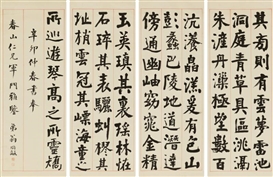 其旁則有雲夢雷池
洞庭青草具區洮滆
朱滻丹漅極望數百
沆瀁皛溔爰有包山
彭蠡巴陵地道潛逵
傍通幽岫窈窕金精
玉英瑱其裏瑤林怪
石琗其表驪虯摎其
址梢雲冠其㟽海童之
所巡遊琴高之所靈矯
辛卯仲春書奉
春山仁兄軍門雅鑒 弟